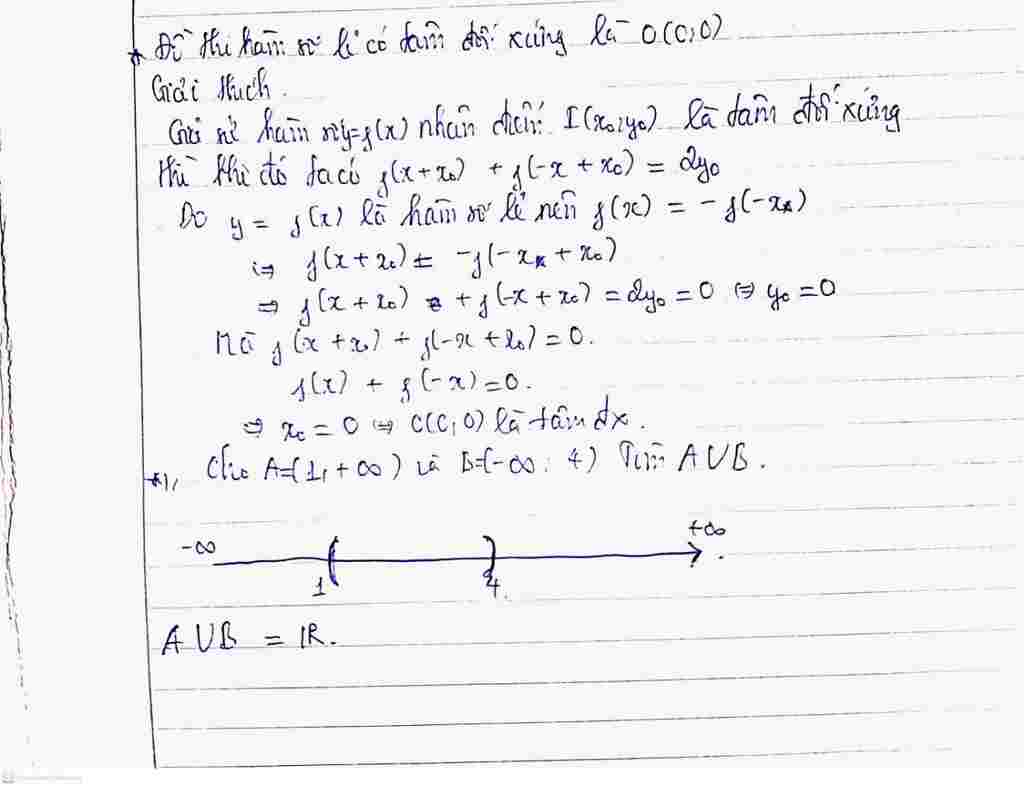 * Đồ thị hàm số lẻ có tâm đối xứng là O(0;0)
Giải thích.
Giả sử hàm số y=f(x) nhận điểm I(x₀;y₀) là tâm đối xứng
thì khi đó ta có f(x+x₀) + f(-x+x₀) = 2y₀
Do y = f(x) là hàm số lẻ nên f(x) = -f(-x)
⇒ f(x+x₀) = -f(-x+x₀)
⇒ f(x+x₀) + f(-x+x₀) = 2y₀ = 0 ⇔ y₀ = 0
Mà f(x+x₀) + f(-x+x₀) = 0.
f(x) + f(-x) = 0.
⇒ x₀ = 0 ⇒ O(0,0) là tâm đx.
*1, Cho A=(1,+∞) và B=(-∞; 4) Tìm A∪B.
-∞ +∞
( )
1 4
A∪B = ℝ.